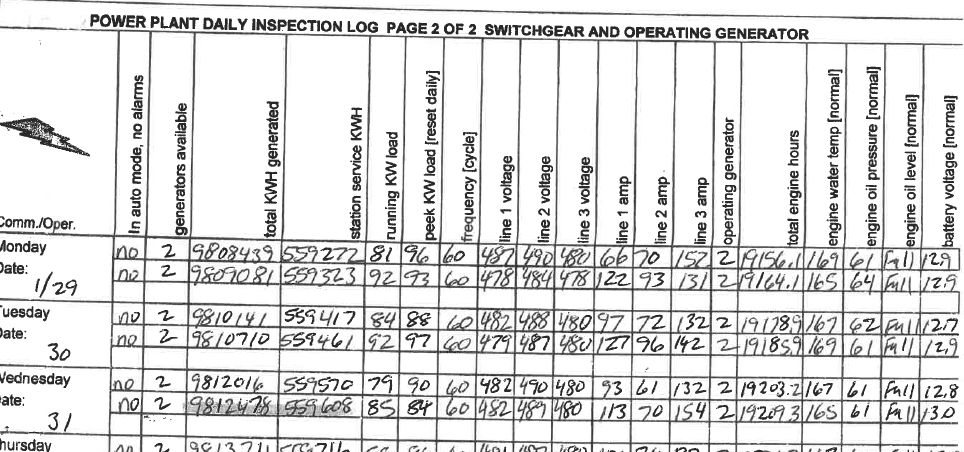 POWER PLANT DAILY INSPECTION LOG PAGE 2 OF 2 SWITCHGEAR AND OPERATING GENERATOR
Comm./Oper. In auto mode, no alarms generators available total KWH generated station service KWH running KW load peek KW load [reset daily] frequency [cycle] line 1 voltage line 2 voltage line 3 voltage line 1 amp line 2 amp line 3 amp operating generator total engine hours engine water temp [normal] engine oil pressure [normal] engine oil level [normal] battery voltage [normal]
Monday no 2 9808439 559272 81 96 60 487 490 480 66 70 152 2 19156.1 169 61 Full 12.9
Date: 1/29 no 2 9809081 559323 92 93 60 478 484 478 122 93 131 2 19164.1 165 64 Full 12.9
Tuesday no 2 9810141 559417 84 88 60 482 488 480 97 72 132 2 19178.9 167 62 Full 12.7
Date: 30 no 2 9810710 559461 92 97 60 479 487 480 127 96 142 2 19185.9 169 61 Full 12.9
Wednesday no 2 9812016 559570 79 90 60 482 490 480 93 61 132 2 19203.2 167 61 Full 12.8
Date: 31 no 2 9812478 559608 85 84 60 482 489 480 113 70 154 2 19209.3 165 61 Full 13.0
Thursday